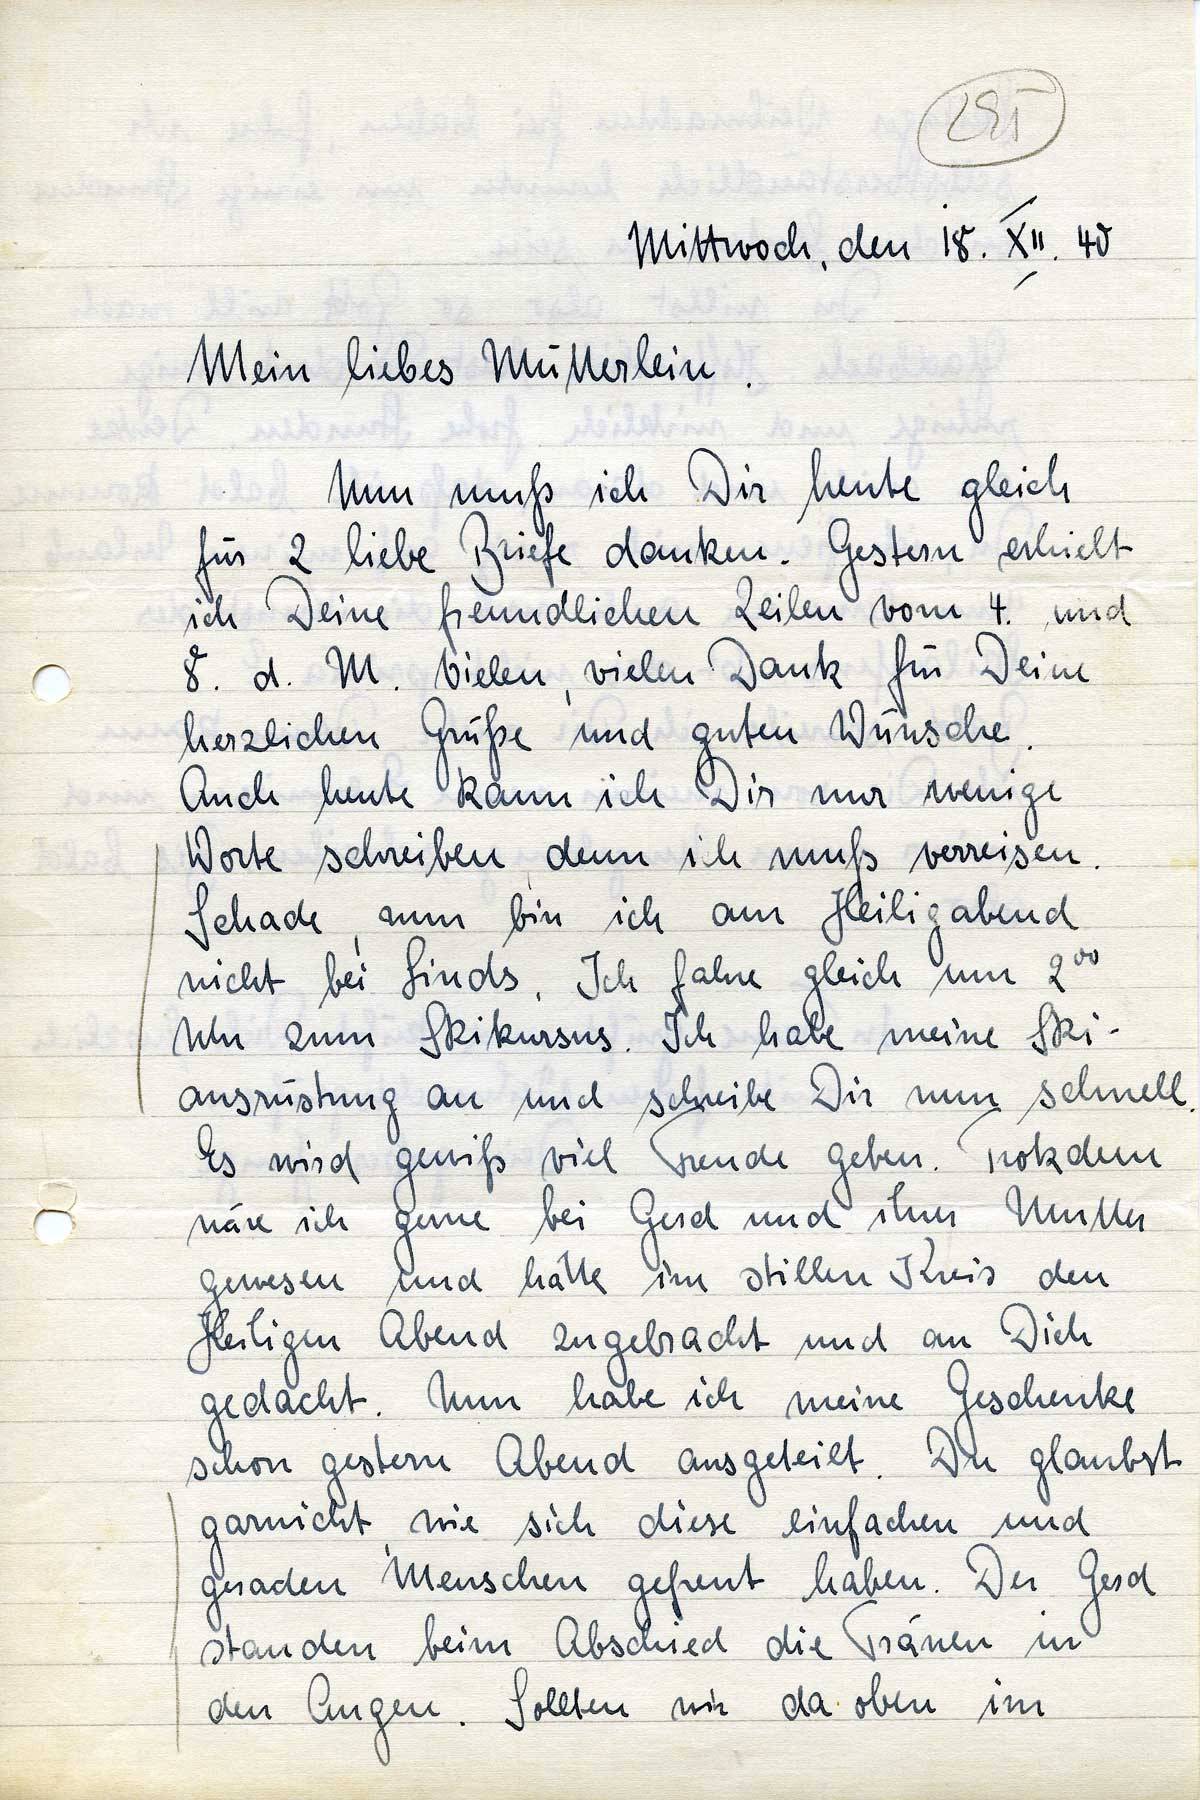 291
Mittwoch, den 18. XII. 40
Mein liebes Mütterlein.
Nun muß ich Dir heute gleich
für 2 liebe Briefe danken. Gestern erhielt
ich Deine freundlichen Zeilen vom 4. und
8. d. M. Vielen, vielen Dank für Deine
herzlichen Grüße und guten Wünsche.
Auch heute kann ich Dir nur wenige
Worte schreiben, denn ich muß verreisen.
Schade, nun bin ich am Heiligabend
nicht bei Sinds. Ich fahre gleich um 2⁰⁰
Uhr zum Skikursus. Ich habe meine Ski-
ausrüstung an und schreibe Dir nun schnell.
Es wird gewiß viel Freude geben. Trotzdem
wäre ich gerne bei Gerd und ihrer Mutter
gewesen und hätte im stillen Kreis den
Heiligen Abend zugebracht und an Dich
gedacht. Nun habe ich meine Geschenke
schon gestern Abend ausgeteilt. Du glaubst
garnicht, wie sich diese einfachen und
geraden Menschen gefreut haben. Der Gerd
standen beim Abschied die Tränen in
den Augen. Sollten wir da oben im